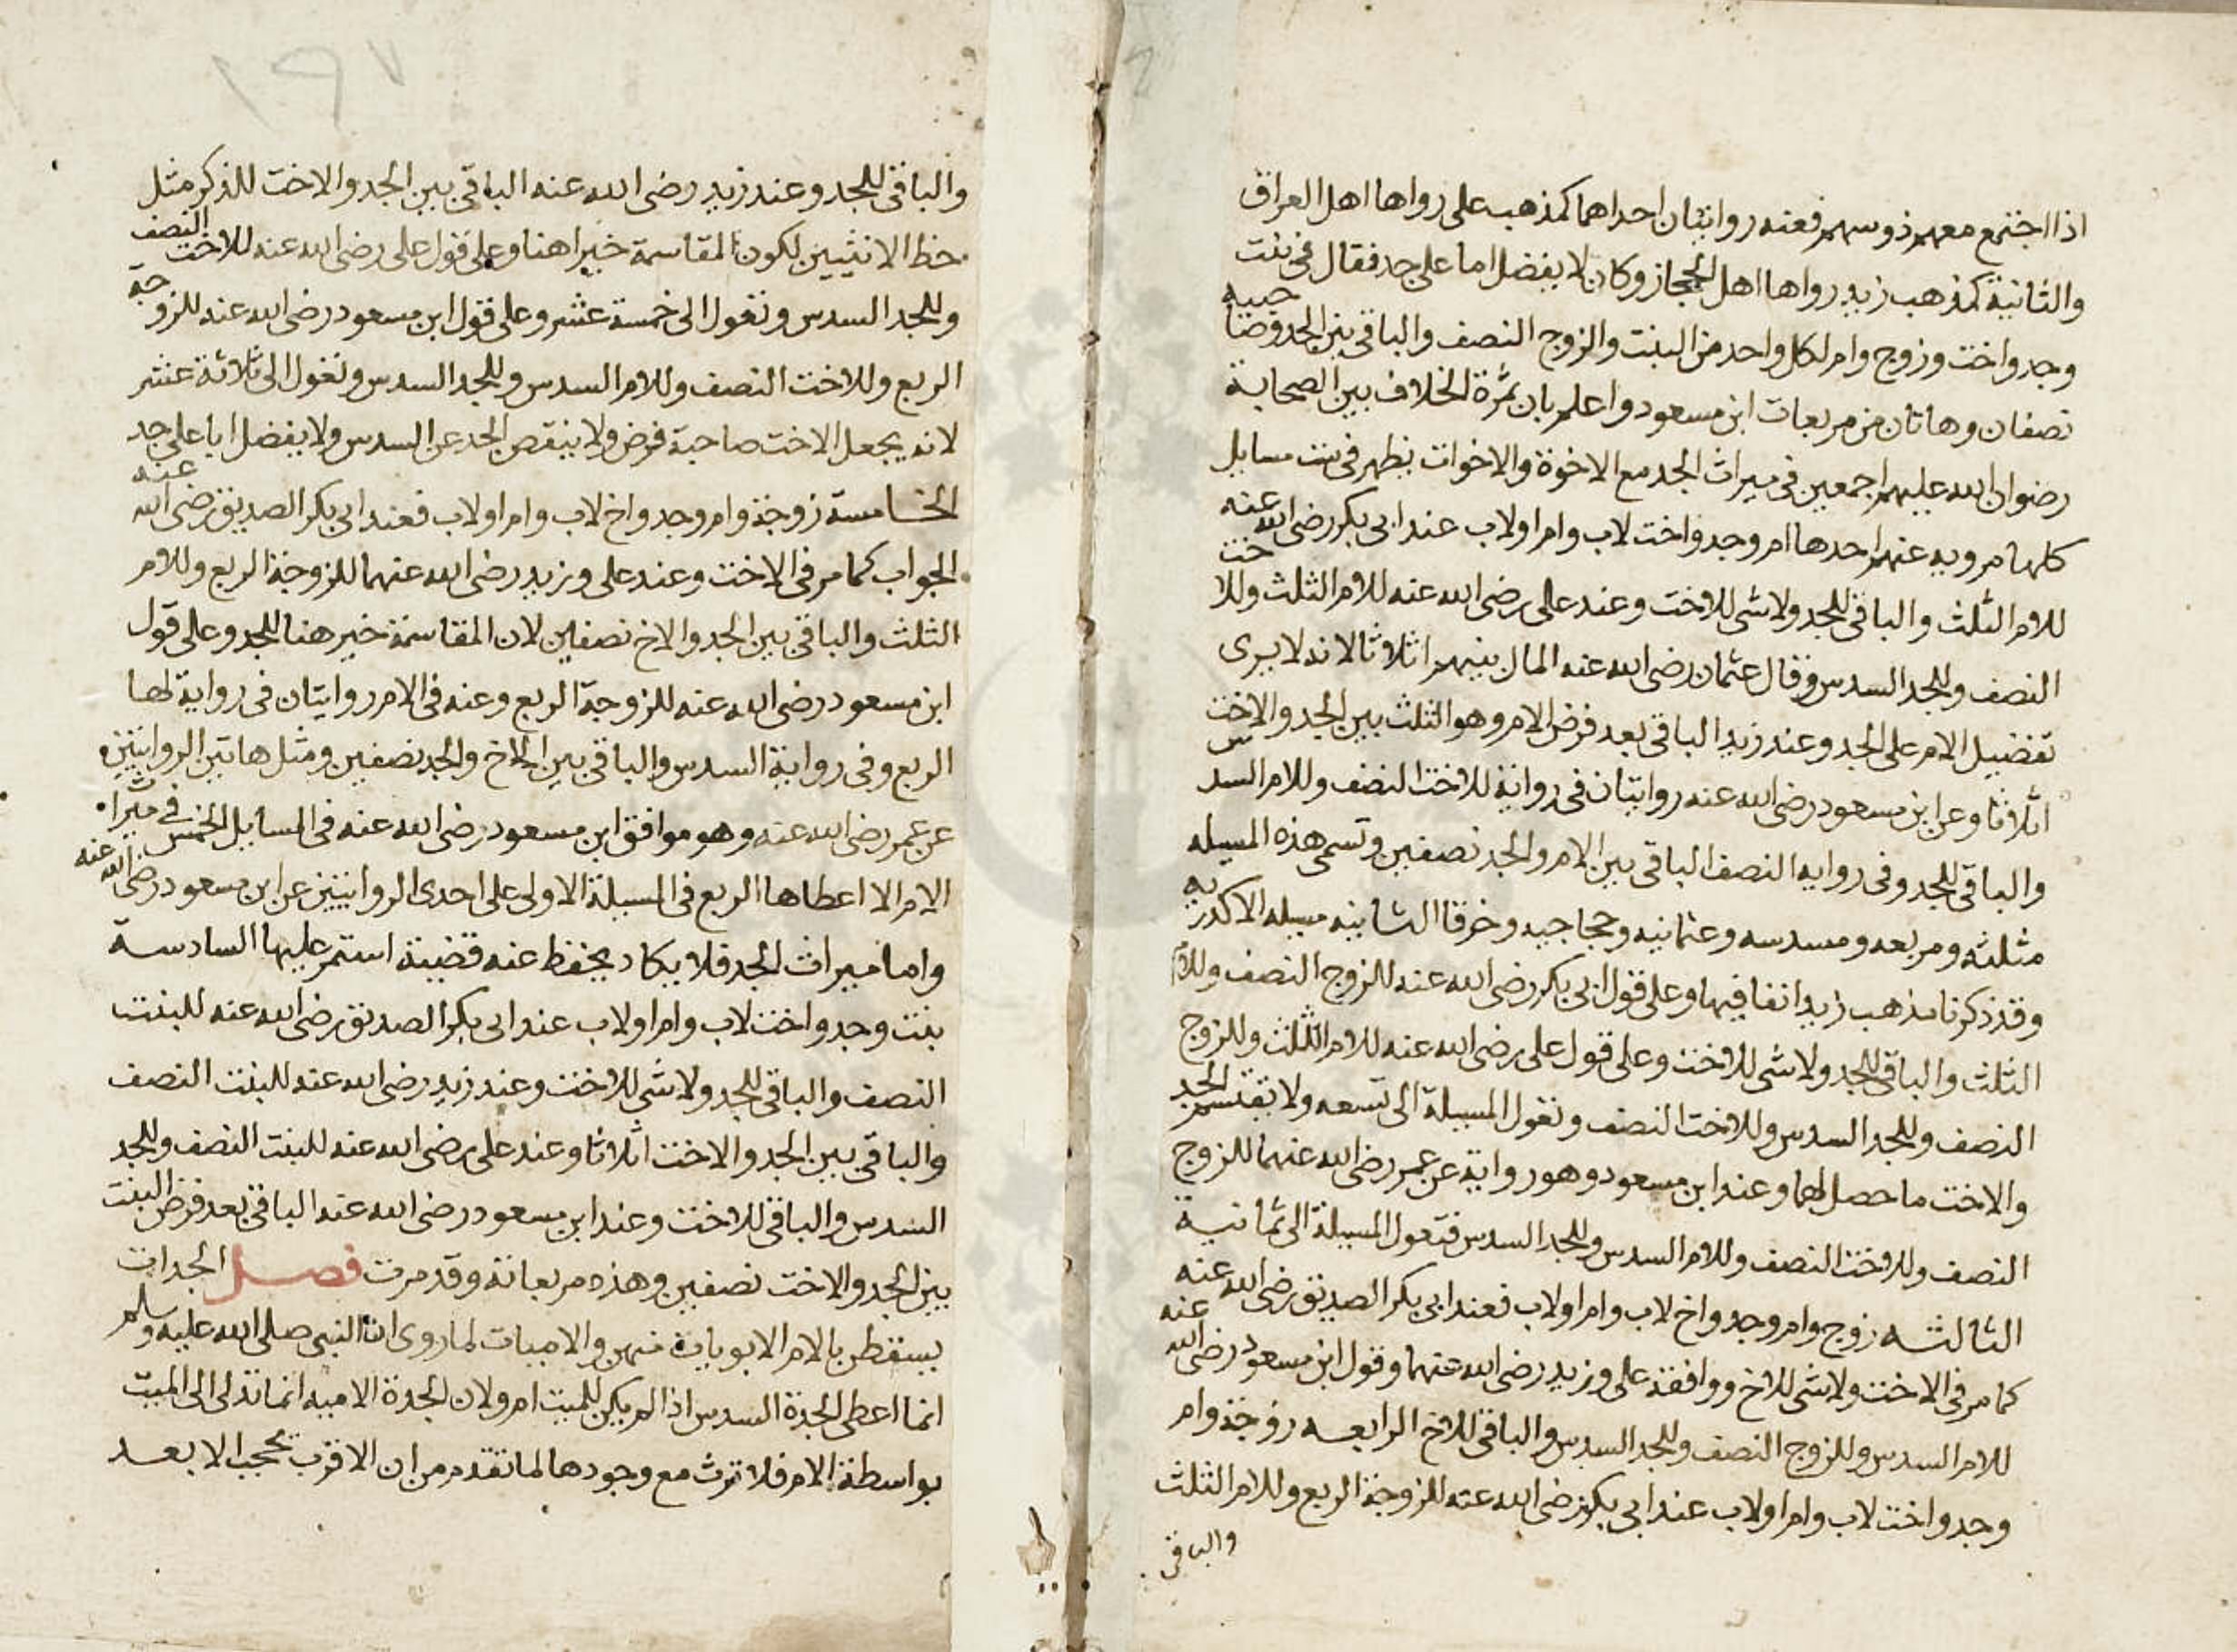 اذا اجتمع معهم ذوسهم فعنه روايتان احداهما كمذهب على رواها اهل العراق
والثانية كمذهب زيد رواها اهل الحجاز وكان لا يفضل اما على جد فقال فى بنت
وجد واخت وزوج وام لكل واحد من البنت والزوج النصف والباقى بين الجد وصاحبيه
نصفان وهاتان من مربعات ابن مسعود واعلم بان ثمرة الخلاف بين الصحابة
رضوان الله عليهم اجمعين فى ميراث الجد مع الاخوة والاخوات يظهر فى ست مسايل
كلها مرويه عنهم احدها ام وجد واخت لاب وام اولاب عند ابى بكر رضى الله عنه
للام الثلث والباقى للجد ولا شى للاخت وعند على رضى الله عنه للام الثلث وللاخت
النصف وللجد السدس وقال عثمان رضى الله عنه المال بينهم اثلاثا لانه لا يرى
تفضيل الام على الجد وعند زيد الباقى بعد فرض الام وهو الثلث بين الجد والاخت
اثلاثا وعن ابن مسعود رضى الله عنه روايتان فى رواية للاخت النصف وللام السدس
والباقى للجد وفى روايه النصف الباقى بين الام والجد نصفين وتسمى هذه المسيله
مثلثه ومربعه ومسدسه وعثمانيه وحجاجيه وخرقا الثانيه مسيله الاكدريه
وقد ذكرنا مذهب زيد انفا فيها وعلى قول ابى بكر رضى الله عنه للزوج النصف وللام
الثلث والباقى للجد ولا شى للاخت وعلى قول على رضى الله عنه للام الثلث وللزوج
النصف وللجد السدس وللاخت النصف وتعول المسيلة الى تسعه ولا يقتسم الجد
والاخت ما حصل لهما وعند ابن مسعود وهو رواية عن عمر رضى الله عنهما للزوج
النصف وللاخت النصف وللام السدس وللجد السدس فتعول المسيلة الى ثمانية
الثالثه زوج وام وجد واخ لاب وام اولاب فعند ابى بكر الصديق رضى الله عنه
كما مر فى الاخت ولا شى للاخ ووافقه على وزيد رضى الله عنهما وقول ابن مسعود رضى الله عنه
للام السدس وللزوج النصف وللجد السدس والباقى للاخ الرابعه زوجة وام
وجد واخت لاب وام اولاب عند ابى بكر رضى الله عنه للزوجة الربع وللام الثلث
والباقى
١٩٧
والباقى للجد وعند زيد رضى الله عنه الباقى بين الجد والاخت للذكر مثل
حظ الانثيين لكون المقاسمة خيرا هنا وعلى قول على رضى الله عنه للاخت النصف
وللجد السدس وتعول الى خمسة عشر وعلى قول ابن مسعود رضى الله عنه للزوجة
الربع وللاخت النصف وللام السدس وللجد السدس وتعول الى ثلاثة عشر
لانه يجعل الاخت صاحبة فرض ولا ينقص الجد عن السدس ولا يفضل اما على جد
الخامسة زوجة وام وجد واخ لاب وام اولاب فعند ابى بكر الصديق رضى الله عنه
الجواب كما مر فى الاخت وعند على وزيد رضى الله عنهما للزوجة الربع وللام
الثلث والباقى بين الجد والاخ نصفين لان المقاسمة خير هنا للجد وعلى قول
ابن مسعود رضى الله عنه للزوجة الربع وعنه فى الام روايتان فى رواية لها
الربع وفى رواية السدس والباقى بين الاخ والجد نصفين ومثل هاتين الروايتين
عن عمر رضى الله عنه وهو موافق ابن مسعود رضى الله عنه فى المسايل الخمس فى ميراث
الام الا اعطاها الربع فى المسيلة الاولى على احدى الروايتين عن ابن مسعود رضى الله عنه
واما ميراث الجد فلا يكاد يحفظ عنه قضية استمر عليها السادسة
بنت وجد واخت لاب وام اولاب عند ابى بكر الصديق رضى الله عنه للبنت
النصف والباقى للجد ولا شى للاخت وعند زيد رضى الله عنه للبنت النصف
والباقى بين الجد والاخت اثلاثا وعند على رضى الله عنه للبنت النصف وللجد
السدس والباقى للاخت وعند ابن مسعود رضى الله عنه الباقى بعد فرض البنت
بين الجد والاخت نصفين وهذه مربعاته وقد مرت فصل الجدات
يسقطن بالام الابويات منهن والاميات لما روى ان النبى صلى الله عليه وسلم
انما اعطى الجدة السدس اذا لم يكن للميت ام ولان الجدة الاميه انما تدلى الى الميت
بواسطة الام فلا ترث مع وجودها لما تقدم من ان الاقرب يحجب الابعد